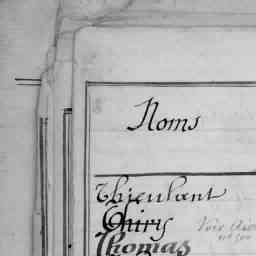 Noms
Thieulant
Thiry
Voir
Thomas